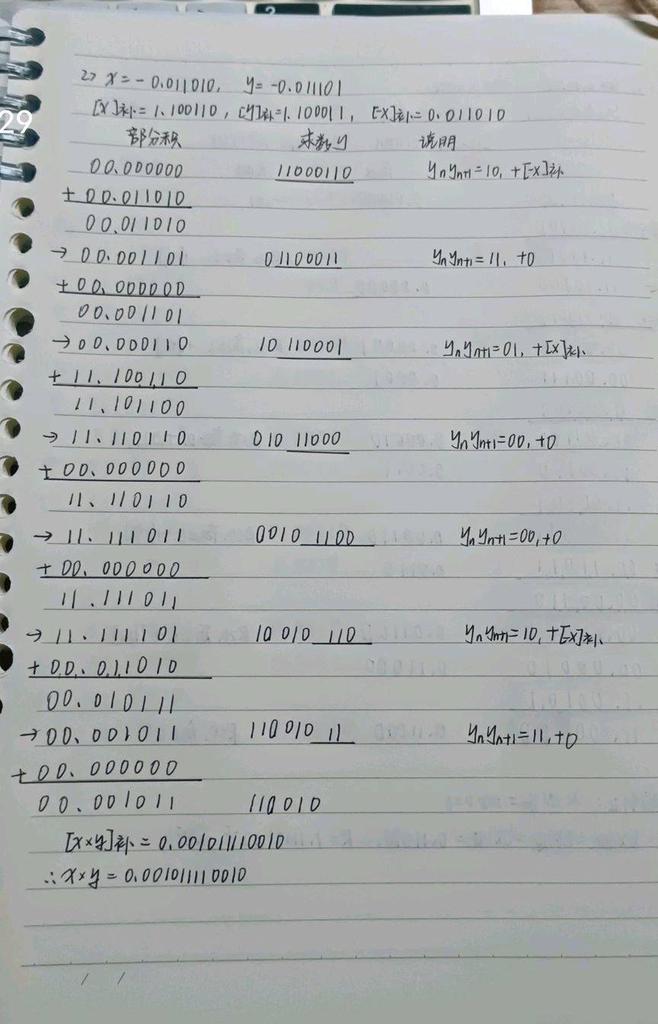 2
29
2> x=-0.011010, y=-0.011101
[x]补=1.100110, [y]补=1.100011, [-x]补=0.011010
部分积 乘数y 说明
00.000000 11000110 ynyn+1=10, +[-x]补
+00.011010
00.011010
→00.001101 01100011 ynyn+1=11, +0
+00.000000
00.001101
→00.000110 10 110001 ynyn+1=01, +[x]补
+11.100110
11.101100
→11.110110 010 11000 ynyn+1=00, +0
+00.000000
11.110110
→11.111011 0010 1100 ynyn+1=00, +0
+00.000000
11.111011
→11.111101 10010 110 ynyn+1=10, +[-x]补
+00.011010
00.010111
→00.001011 110010 11 ynyn+1=11, +0
+00.000000
00.001011 110010
[x×y]补=0.001011110010
∴x×y=0.001011110010